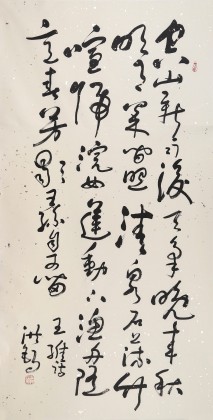 空山新雨後天氣晚來秋
明月松間照清泉石上流竹
喧歸浣女蓮動下漁舟隨
意春芳歇王孫自可留
王維詩